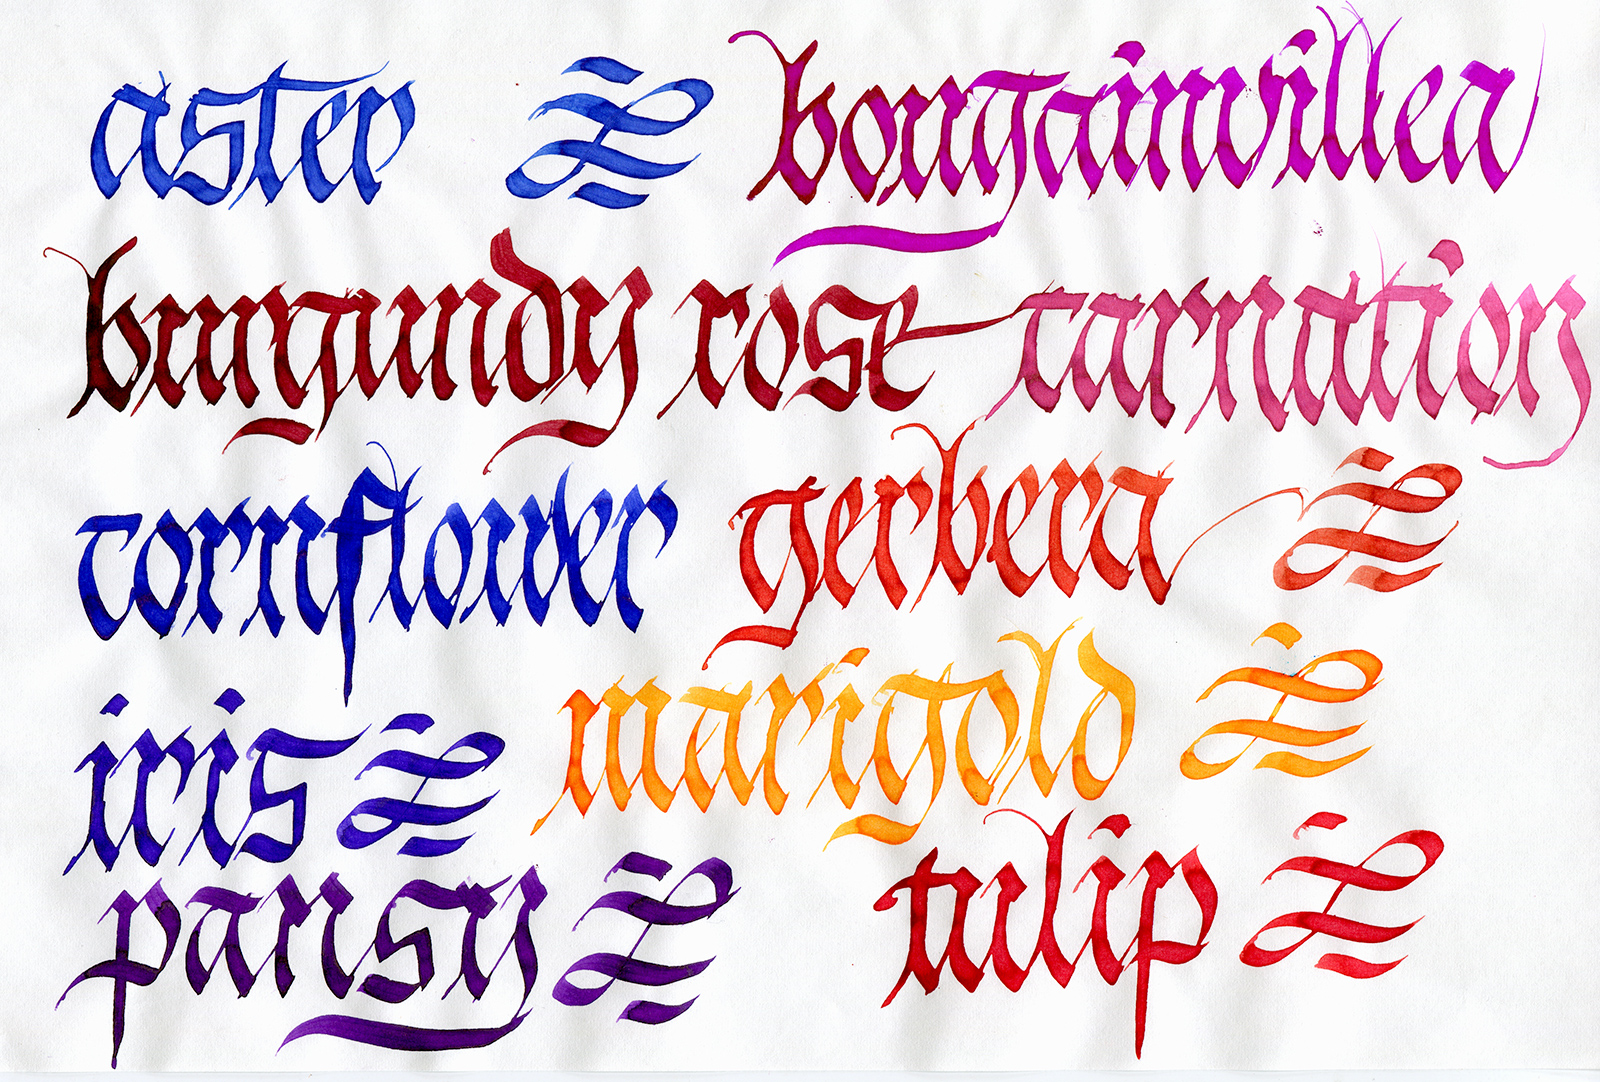 aster bougainvillea
burgundy rose carnation
cornflower gerbera
iris marigold
pansy tulip